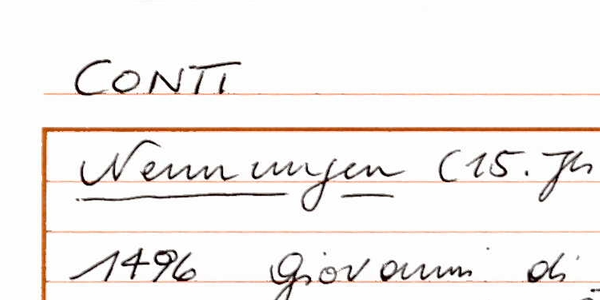 CONTI
Nennungen (15. Jh
1496 Giovanni di